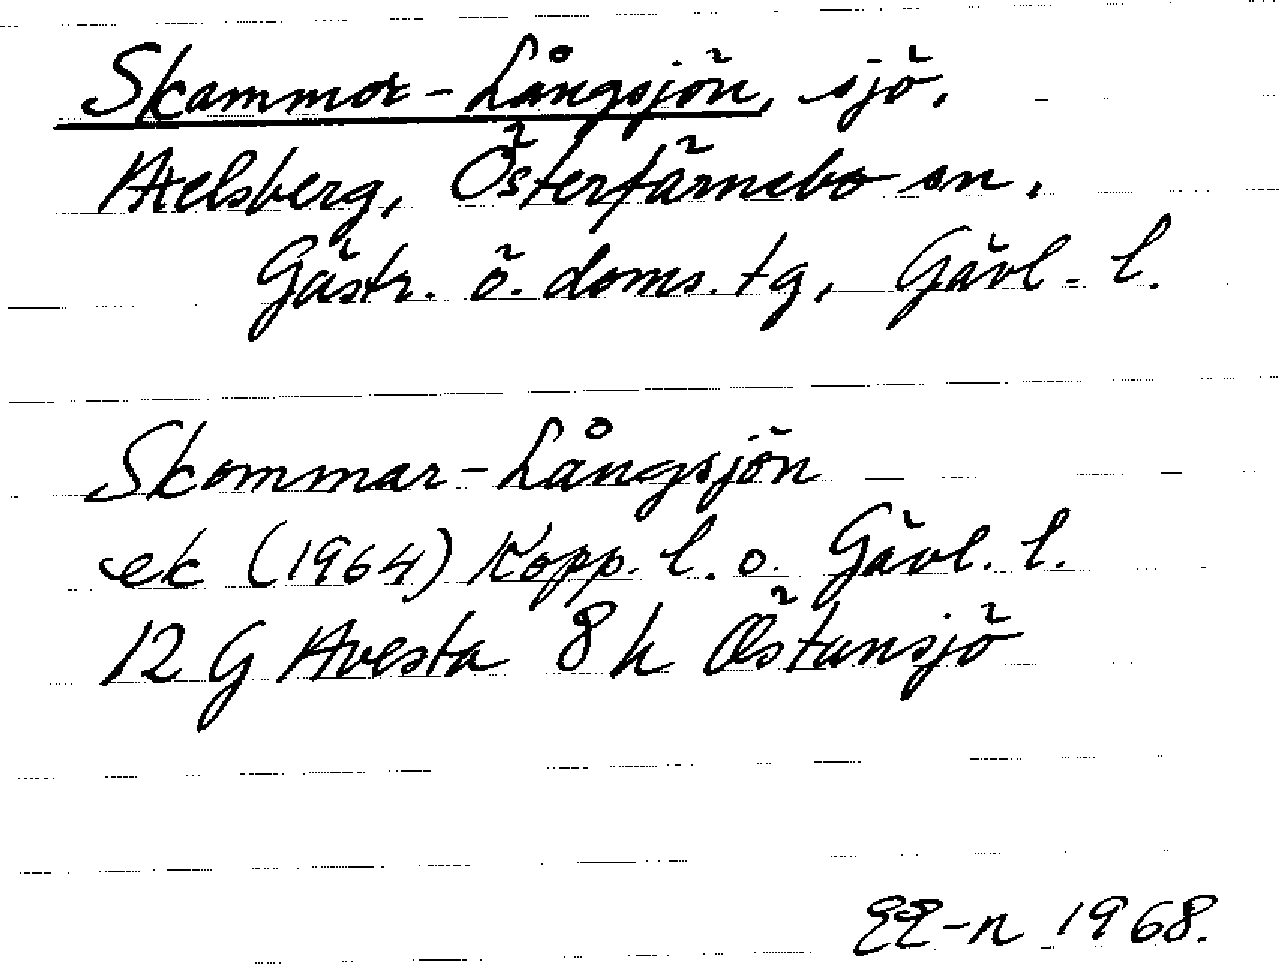 Skammor-Långsjön, sjö.
Axelsberg, Österfärnebo sn.
Gästr. ö. doms. tg, Gävl. l.
Skommar-Långsjön
ek (1964) Kopp. l. o. Gävl. l.
12 G Avesta 8 h Östansjö
EE-n 1968.